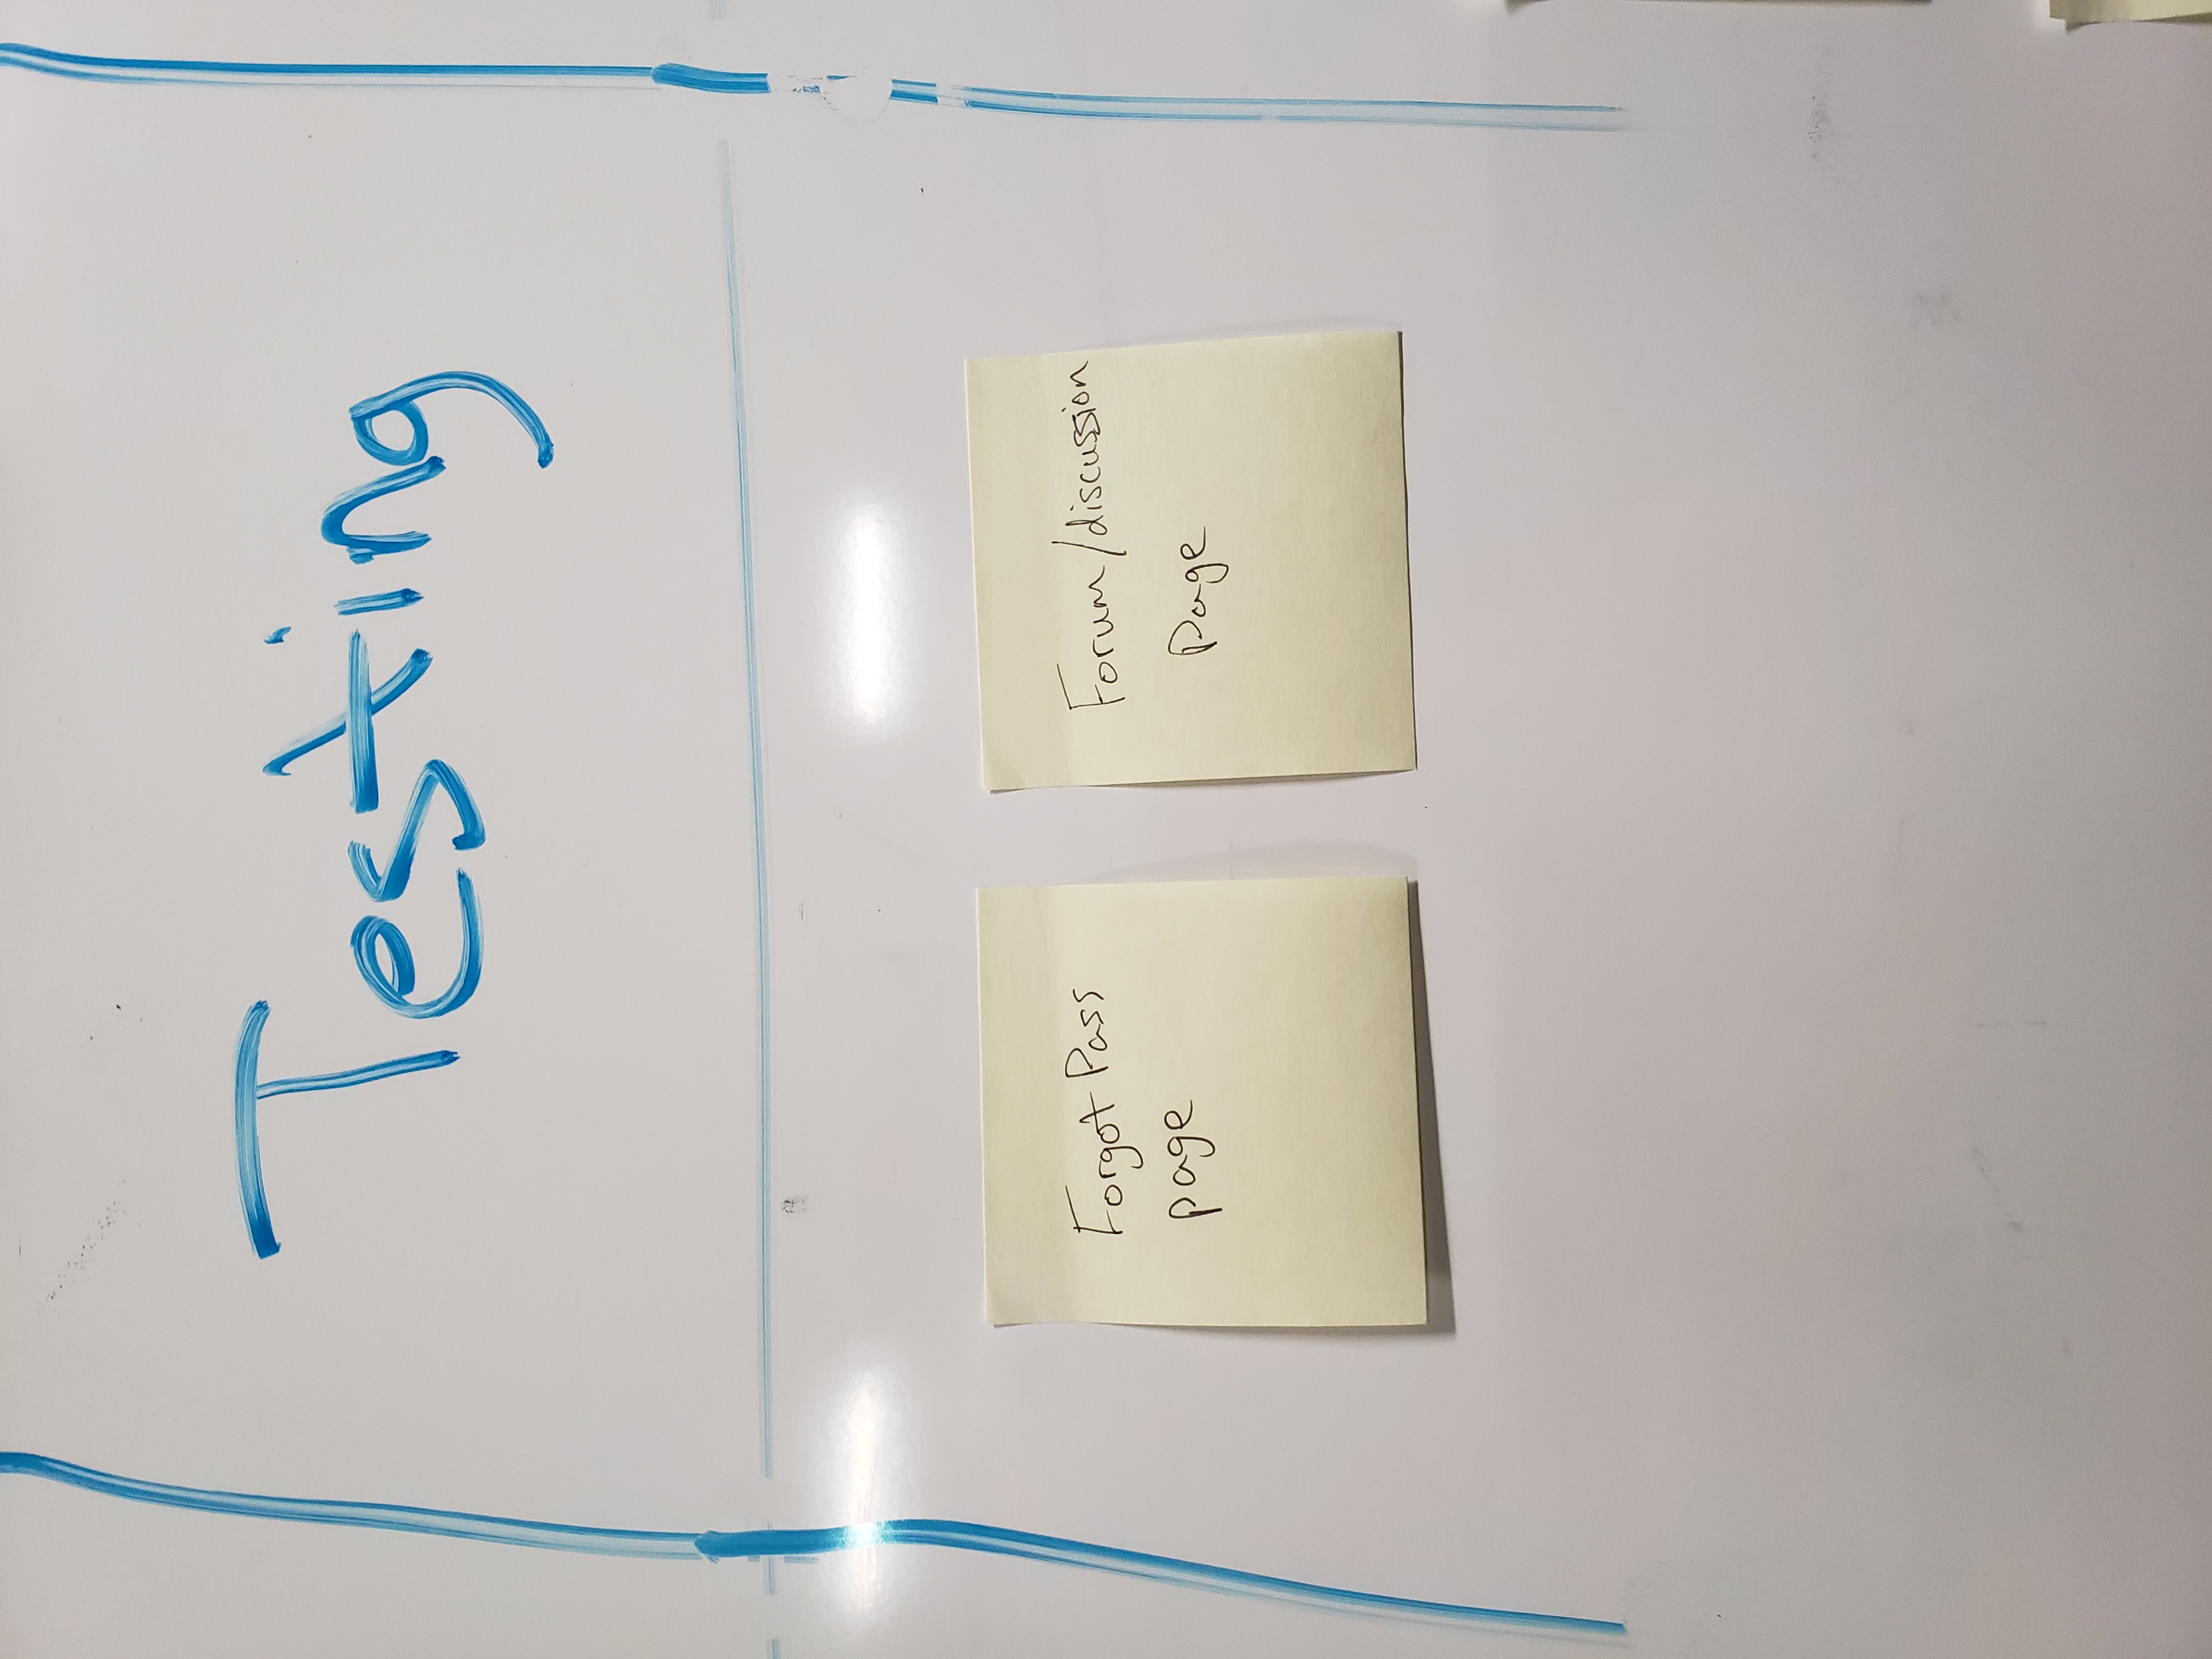 Testing
Forgot Pass
page
Forum/discussion
Page